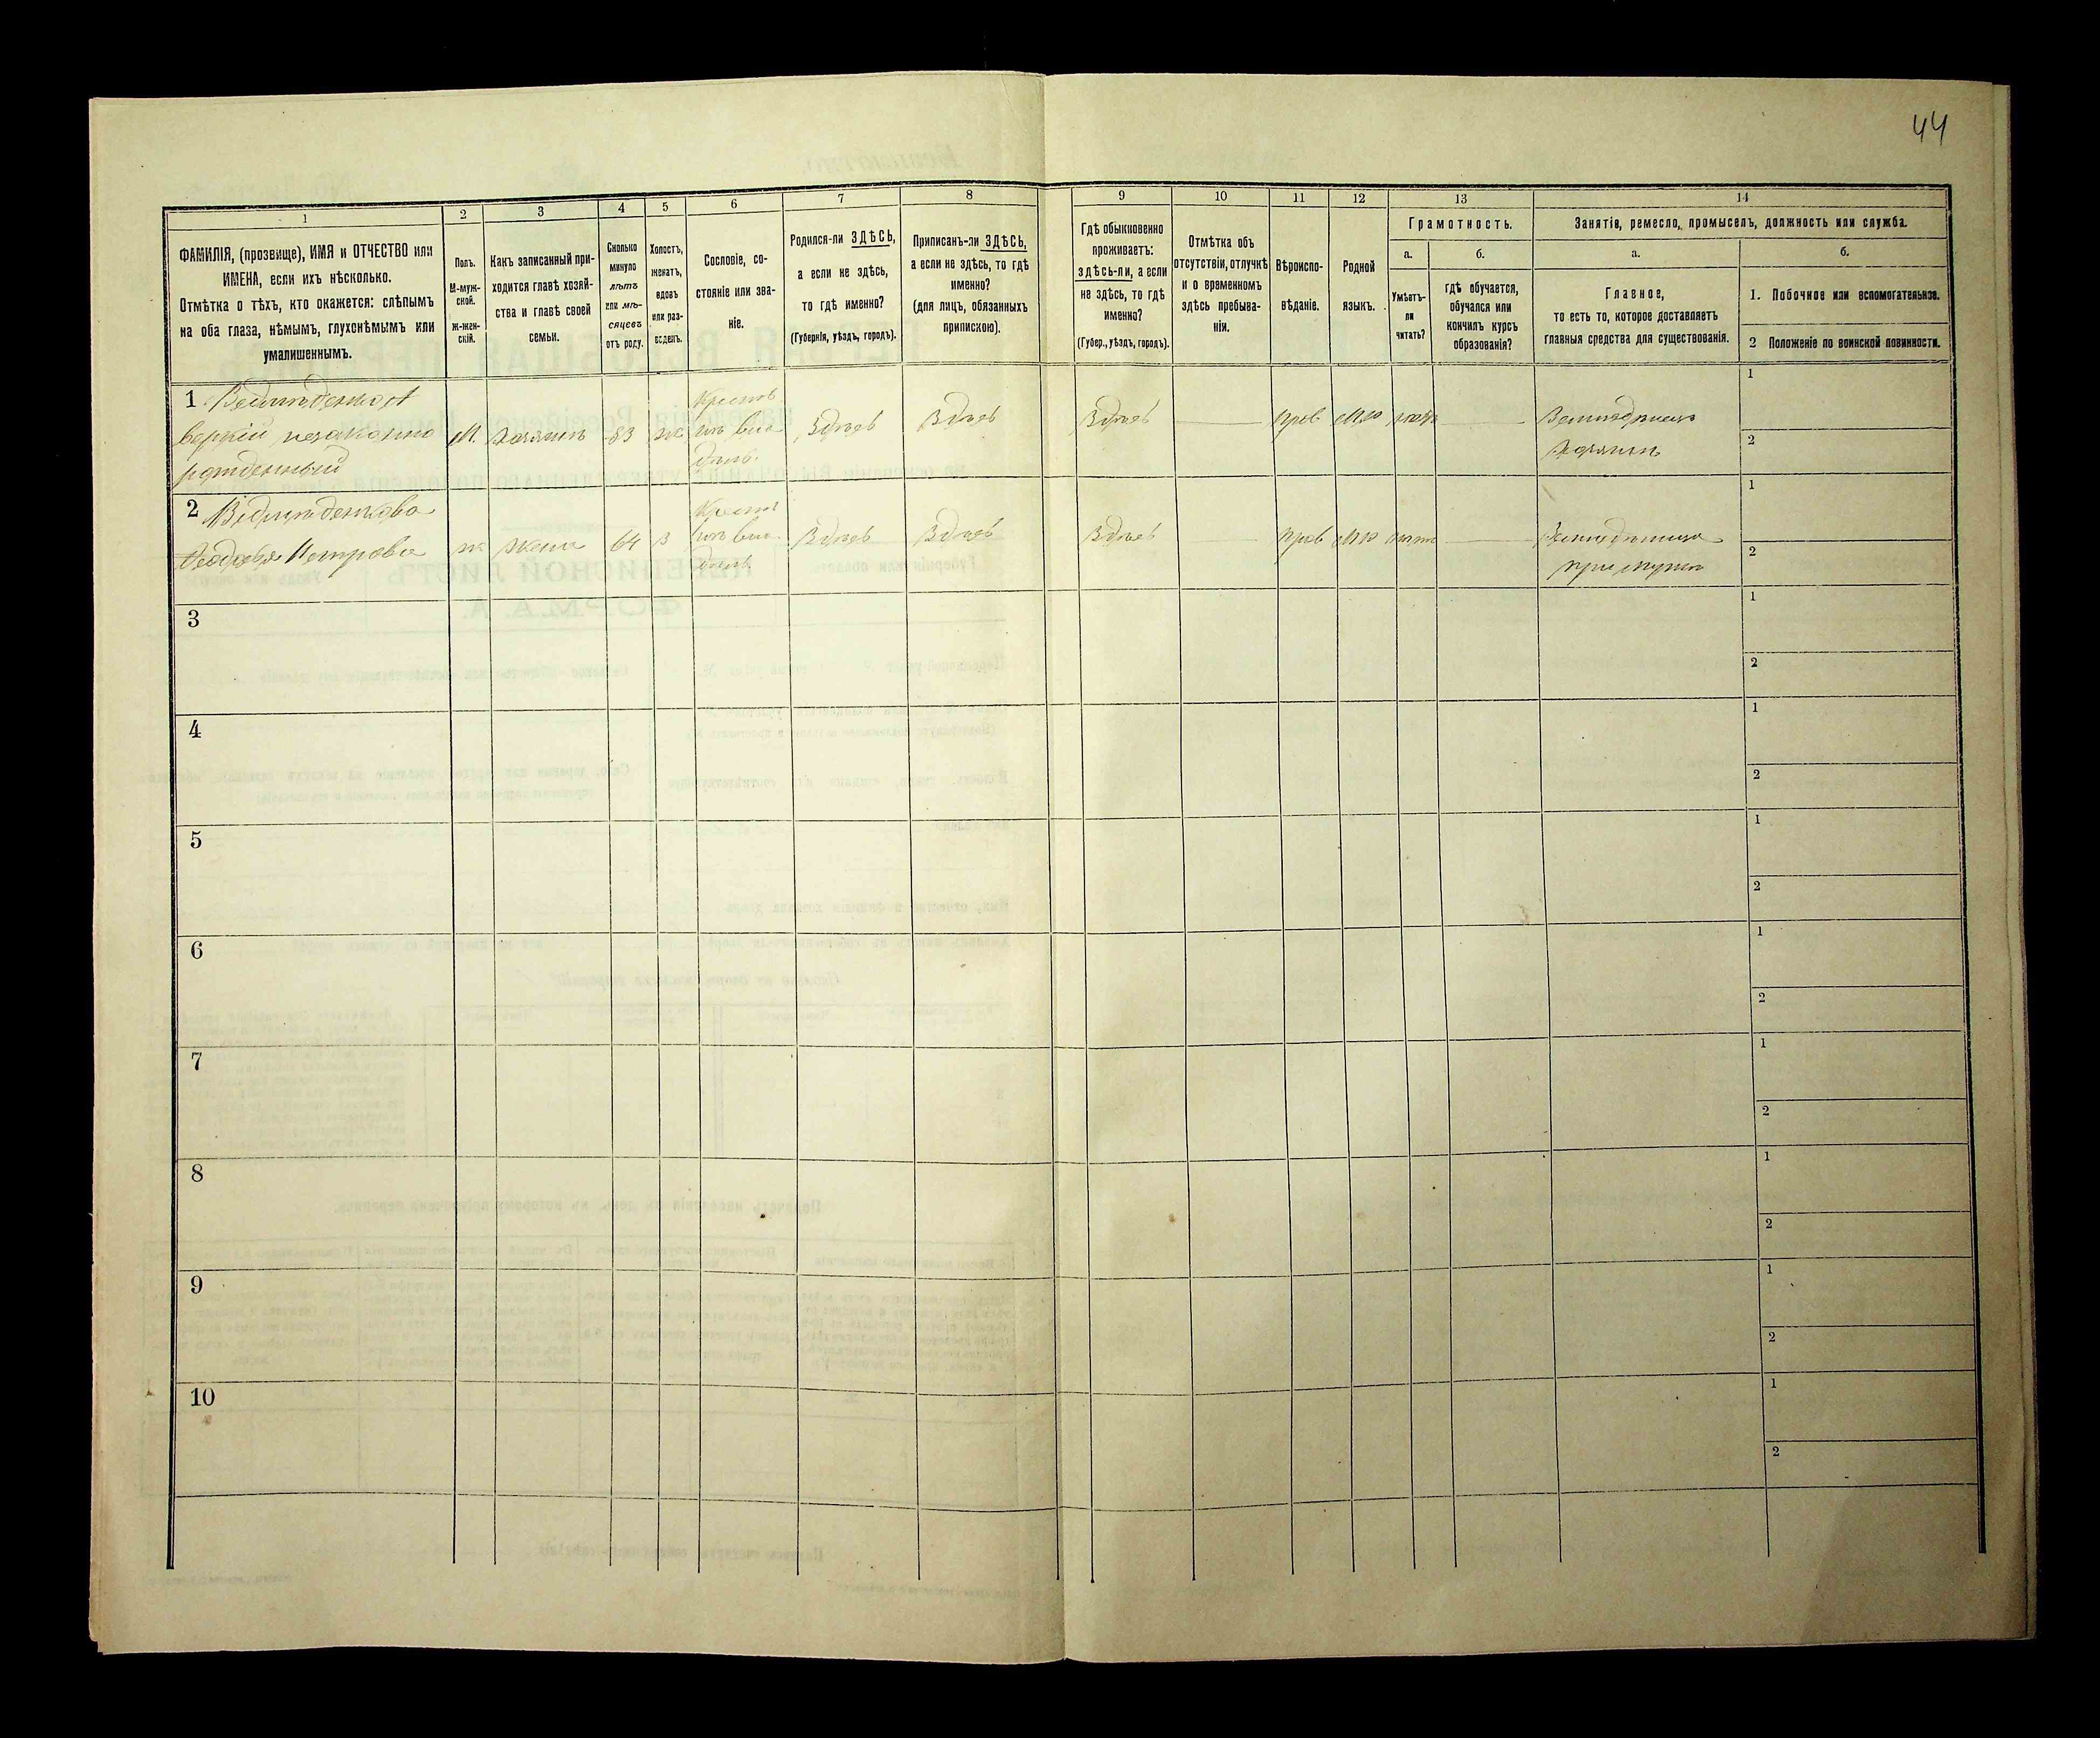 44
1
2
3
4
5
6
7
8
9
10
11
12
13
14
ФАМИЛІЯ, (прозвище), ИМЯ и ОТЧЕСТВО или
ИМЕНА, если ихъ нѣсколько.
Отмѣтка о тѣхъ, кто окажется: слѣпымъ
на оба глаза, нѣмымъ, глухонѣмымъ или
умалишеннымъ.
Полъ.
М-муж-
ской.
Ж-жен-
скій.
Какъ записанный при-
ходится главѣ хозяй-
ства и главѣ своей
семьи.
Сколько
минуло
лѣтъ
или мѣ-
сяцевъ
отъ роду.
Холостъ,
женатъ,
вдовъ
или раз-
веденъ.
Сословіе, со-
стояніе или зва-
ніе.
Родился-ли ЗДѢСЬ,
а если не здѣсь,
то гдѣ именно?
(Губернія, уѣздъ, городъ).
Приписанъ-ли ЗДѢСЬ,
а если не здѣсь, то гдѣ
именно?
(для лицъ, обязанныхъ
припискою).
Гдѣ обыкновенно
проживаетъ:
здѣсь-ли, а если
не здѣсь, то гдѣ
именно?
(Губер., уѣздъ, городъ).
Отмѣтка объ
отсутствіи, отлучкѣ
и о временномъ
здѣсь пребыва-
ніи.
Вѣроиспо-
вѣданіе.
Родной
языкъ.
Грамотность.
а.
Умѣетъ-
ли
читать?
б.
гдѣ обучается,
обучался или
кончилъ курсъ
образованія?
Занятія, ремесло, промыселъ, должность или служба.
а.
Главное,
то есть то, которое доставляетъ
главныя средства для существованія.
б.
1. Побочное или вспомогательное.
2 Положеніе по воинской повинности.
1
незаконно
рожденный
М. Хозяинъ 83 ж
Крест
изъ вла
дѣль.
Здѣсь Здѣсь Здѣсь
прав мр нѣтъ
хозяинъ
1
2
2
Петрова
ж жена 64 З
Крест
изъ вла
дѣль.
Здѣсь Здѣсь Здѣсь
прав мр нѣтъ
при мужѣ
1
2
3
1
2
4
1
2
5
1
2
6
1
2
7
1
2
8
1
2
9
1
2
10
1
2